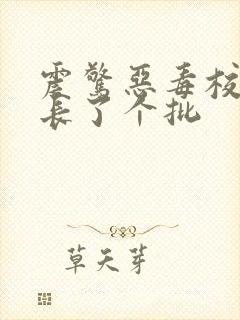 震惊恶毒校
长了个批
草天芽